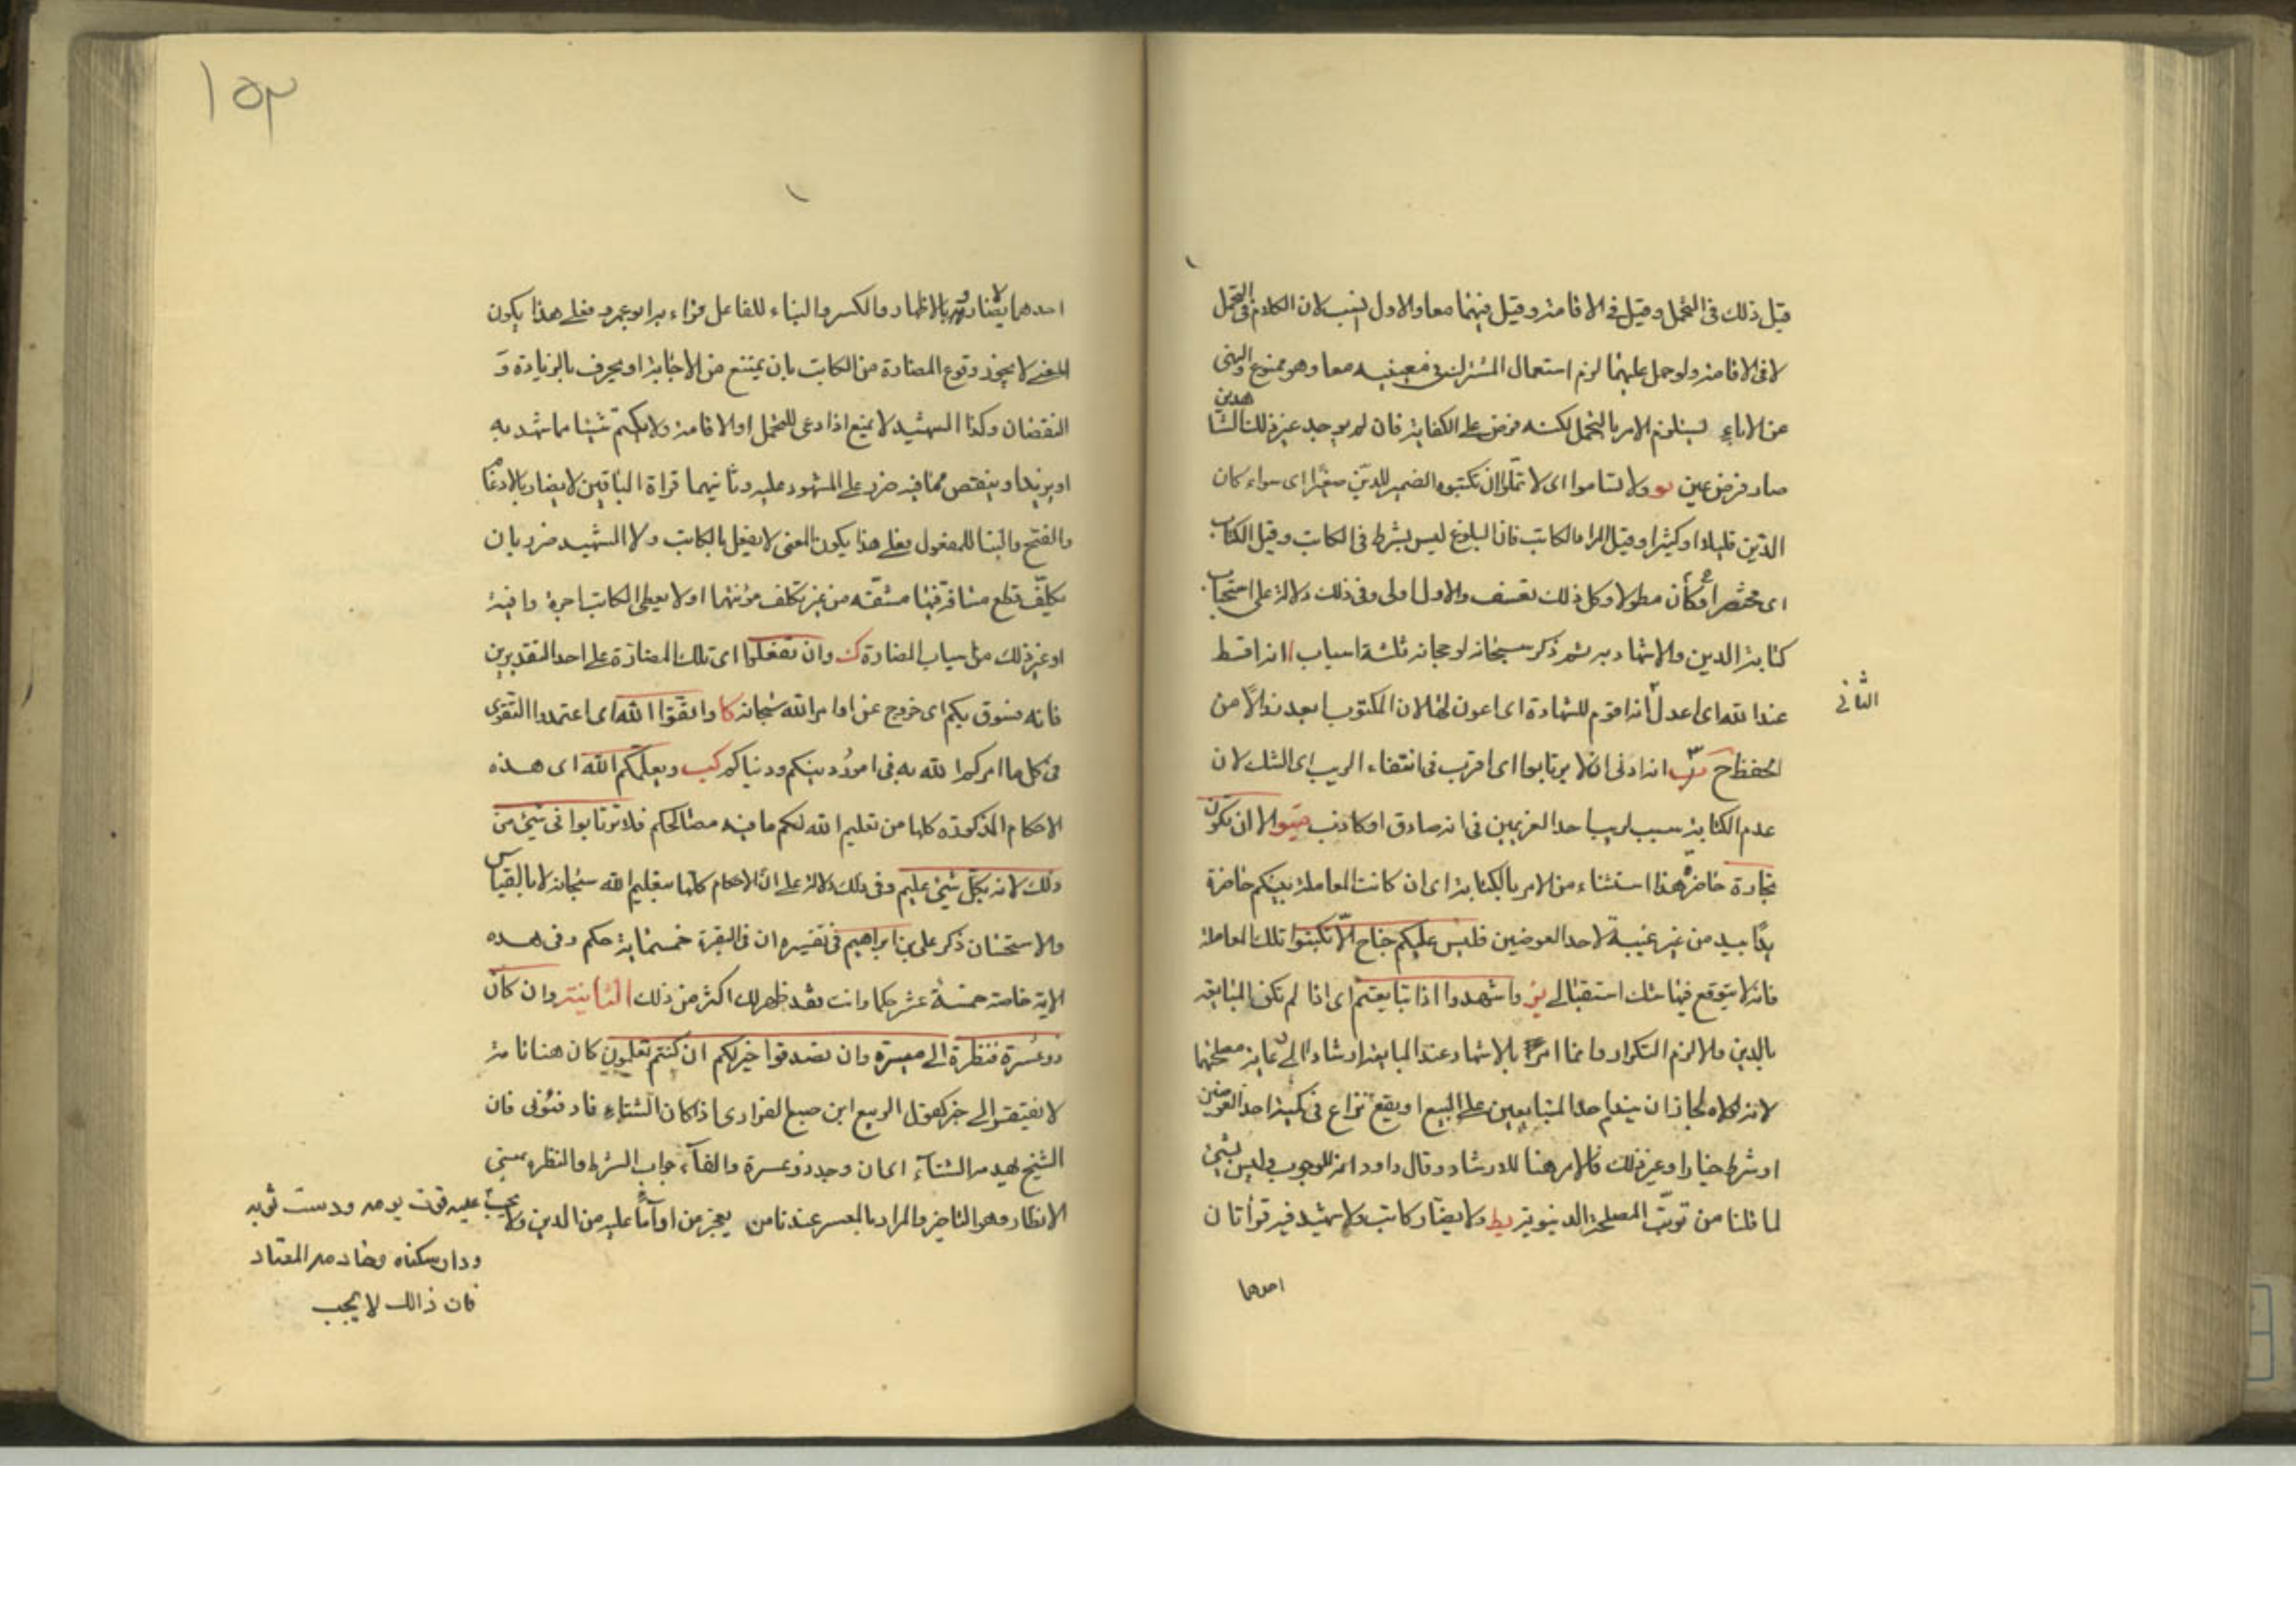 قيل ذلك فى التحمل وقيل فى الاقامة وقيل فيهما معا والاول انسب لان الكلام فى التحمل
لا فى الاقامة ولو حمل عليهما لزم استعمال المشترك فى معنييه معا وهو ممنوع والنهى
عن الاباء يستلزم الامر بالتحمل لكنه فرض على الكفاية فان لم يوجد غير ذلك الشاهدين
صار فرض عين يو ولا تساموا اى لا تملوا ان تكتبوه الضمير للدين صغيرا اى سواء كان
الدين قليلا او كثيرا وقيل المراد الكاتب فان البلوغ ليس بشرط فى الكاتب وقيل الكتاب
اى مختصرا او كان مطولا وكل ذلك تعسف والاول اولى وفى ذلك دلالة على استحباب
كتابة الدين والاشهاد به ثم ذكر سبحانه لوحجانه ثلثة اسباب ا انه اقسط
عند الله اى اعدل انه اقوم للشهادة اى اعون لها لان المكتوب ابعد زوالا من
الثانى
الحفظ ح انه ادنى ان لا يرتابوا اى اقرب فى انتفاء الريب اى الشك لان
عدم الكتابة سبب لريب احد الغريمين فى انه صادق او كاذب الا ان تكون
تجارة حاضرة هذا استثناء من الامر بالكتابة اى ان كانت المعاملة بينكم حاضرة
يدا بيد من غير غيبة لاحد العوضين فليس عليكم جناح الا تكتبوا تلك المعاملة
فانه لا يتوقع فيها شك استقبالى يز واشهدوا اذا تبايعتم اى اذا لم تكن المبايعة
بالدين والا لزم التكرار وانما امر بالاشهاد عند المبايعة ارشادا الى غاية مصلحتها
لانه لولاه لجاز ان يندم احد المتبايعين على البيع او يقع نزاع فى كمية احد العوضين
او شرط خيار او غير ذلك فالامر هنا للارشاد وقال داود انه للوجوب وليس بشئ
لما قلنا من توب المصلحة الدنيوية يط ولا يضار كاتب ولا شهيد فيه قرأتان
احدهما
١٥٣
احدهما لا يضارر بالاظهار والكسر والبناء للفاعل قراء به ابو عمرو فعلى هذا يكون
المعنى لا يجوز وقوع المضارة من الكاتب بان يمتنع من الاجابة او يحرف بالزيادة و
النقصان وكذا الشهيد لا يمنع اذا دعى للتحمل او الاقامة ولا يكتم شيئا مما شهد به
او يزيد او ينقص مما فيه ضرر على المشهود عليه وثانيهما قراة الباقين لا يضار بالادغام
والفتح والبنا للمفعول فعلى هذا يكون المعنى لا يفعل بالكاتب ولا الشهيد ضرر بان
يكلف قطع مسافة فيها مشقه من غير تكلف مؤنتها او لا يعطى الكاتب اجرة وافية
او غير ذلك من اسباب المضارة ك وان تفعلوا اى تلك المضارة على احد التقديرين
فانه فسوق بكم اى خروج عن اوامر الله سبحانه كا واتقوا الله اى اعتمدوا التقوى
فى كل ما امركم الله به فى امور دينكم ودنياكم كب ويعلمكم الله اى هذه
الاحكام المذكورة كلها من تعليم الله لكم ما فيه مصالحكم فلا ترتابوا فى شئ من
ذلك لانه بكل شئ عليم وفى ذلك دلالة على ان الاحكام كلها بتعليم الله سبحانه لا بالقياس
والاستحسان ذكر على بن ابراهيم فى تفسيره ان فى البقرة خمسماية حكم وفى هذه
الاية خاصة خمسة عشر حكما وانت فقد ظهر لك اكثر من ذلك الثانية وان كان
ذو عسرة فنظرة الى ميسرة وان تصدقوا خير لكم ان كنتم تعلمون كان هنا تامة
لا يفتقر الى خبر كقول الربيع ابن ضبع الفزارى اذا كان الشتاء فادفئونى فان
الشيخ يهدمه الشتاء اى ان وجد ذو عسرة والفاء جواب الشرط والنظرة بمعنى
الانظار وهو التاخير والمراد بالمعسر عندنا من يعجز من اداء ما عليه من الدين ولا
يحسب عليه قوت يومه ودست ثوبه
ودار سكناه وخادمه المعتاد
فان ذالك لا يجب